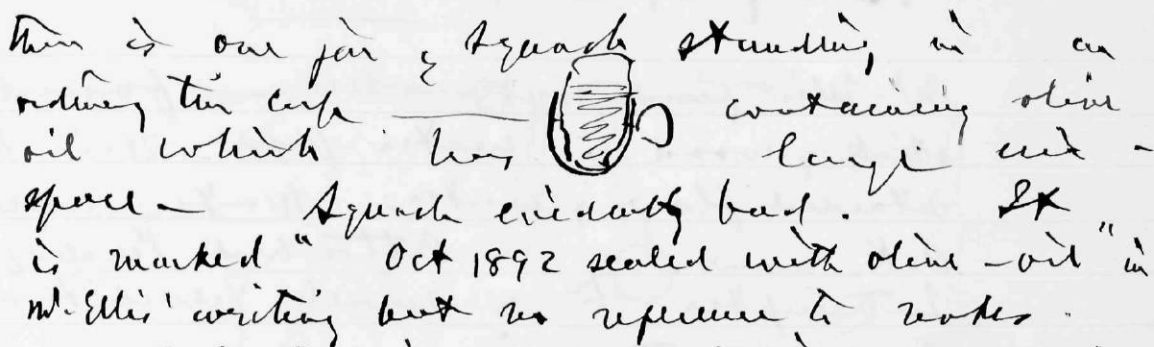 There is one jar of squash standing in an
ordinary tin cup containing olive
oil which has large air -
space - squash evidently bad. It
is marked "Oct 1892 sealed with olive-oil" in
Mr. Ellis' writing but no reference to notes.